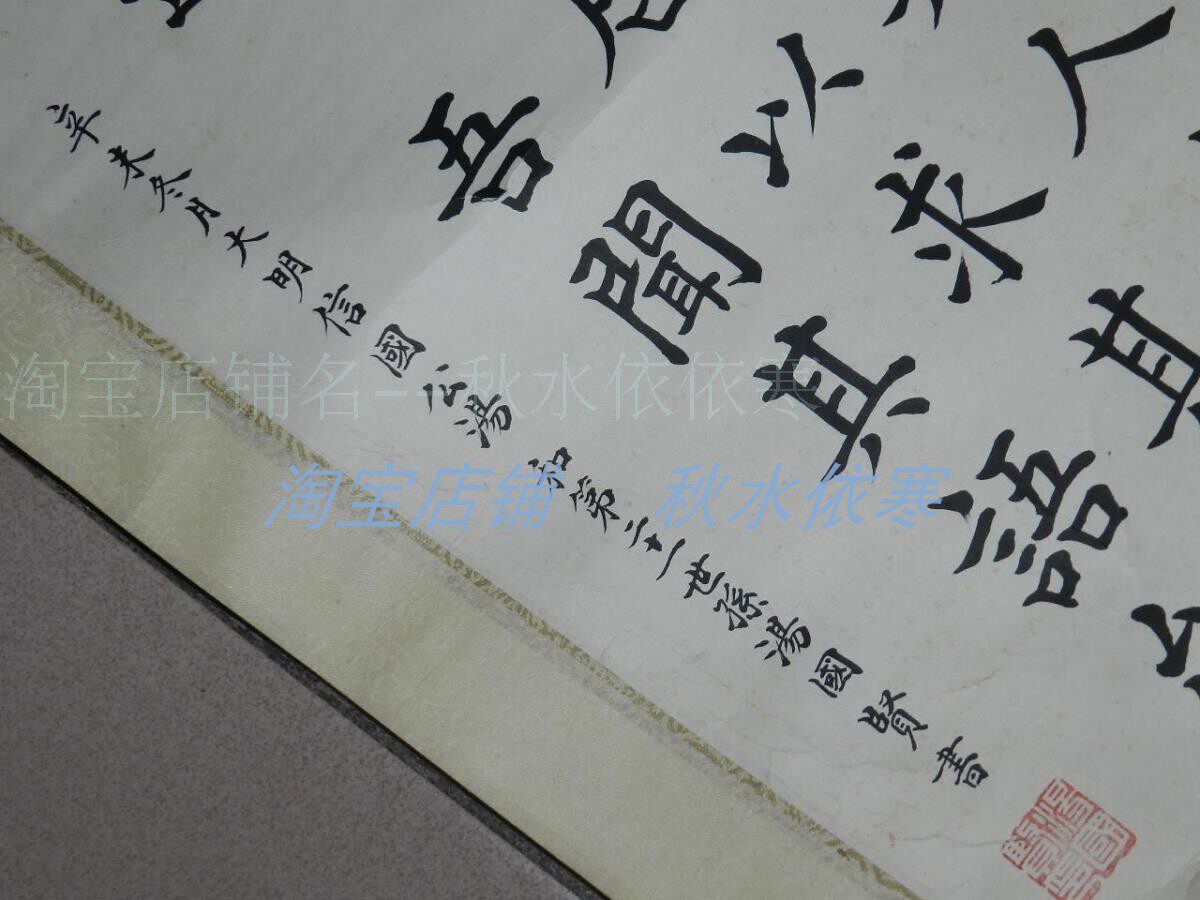 人
以求其
吾聞其語
辛未冬月大明信國公湯和第二十一世孫湯國賢書
淘宝店铺名--秋水依依寒
淘宝店铺 秋水依寒